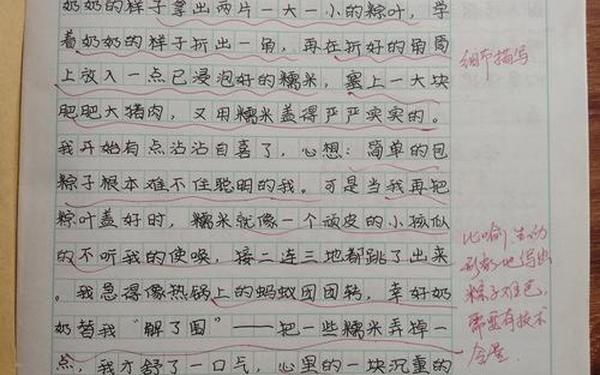 奶奶的样子拿出两片一大一小的粽叶，学
着奶奶的样子折出一角，再在折好的角周
上放入一点已浸泡好的糯米，塞上一大块
肥肥大猪肉，又用糯米盖得严严实实的。
我开始有点沾沾自喜了，心想：简单的包
粽子根本难不住聪明的我。可是当我再把
粽叶盖好时，糯米就像一个顽皮的小孩似
的不听我的使唤，接二连三地都跳了出来
。我急得像热锅上的蚂蚁团团转，幸好奶
奶替我“解了围”——把一些糯米弄掉一
点，我才舒了一口气，心里的一块沉重的
细节描写
比喻生动
形象地写出
粽子难包，
需要有技术
含量